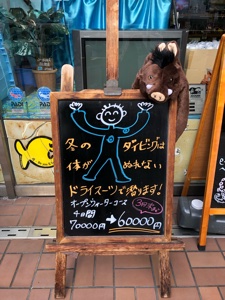 冬のダイビングは
体がぬれない
ドライスーツで潜ります!
オープンウォーターコース
4日間
70000円→60000円
PADI
PADI